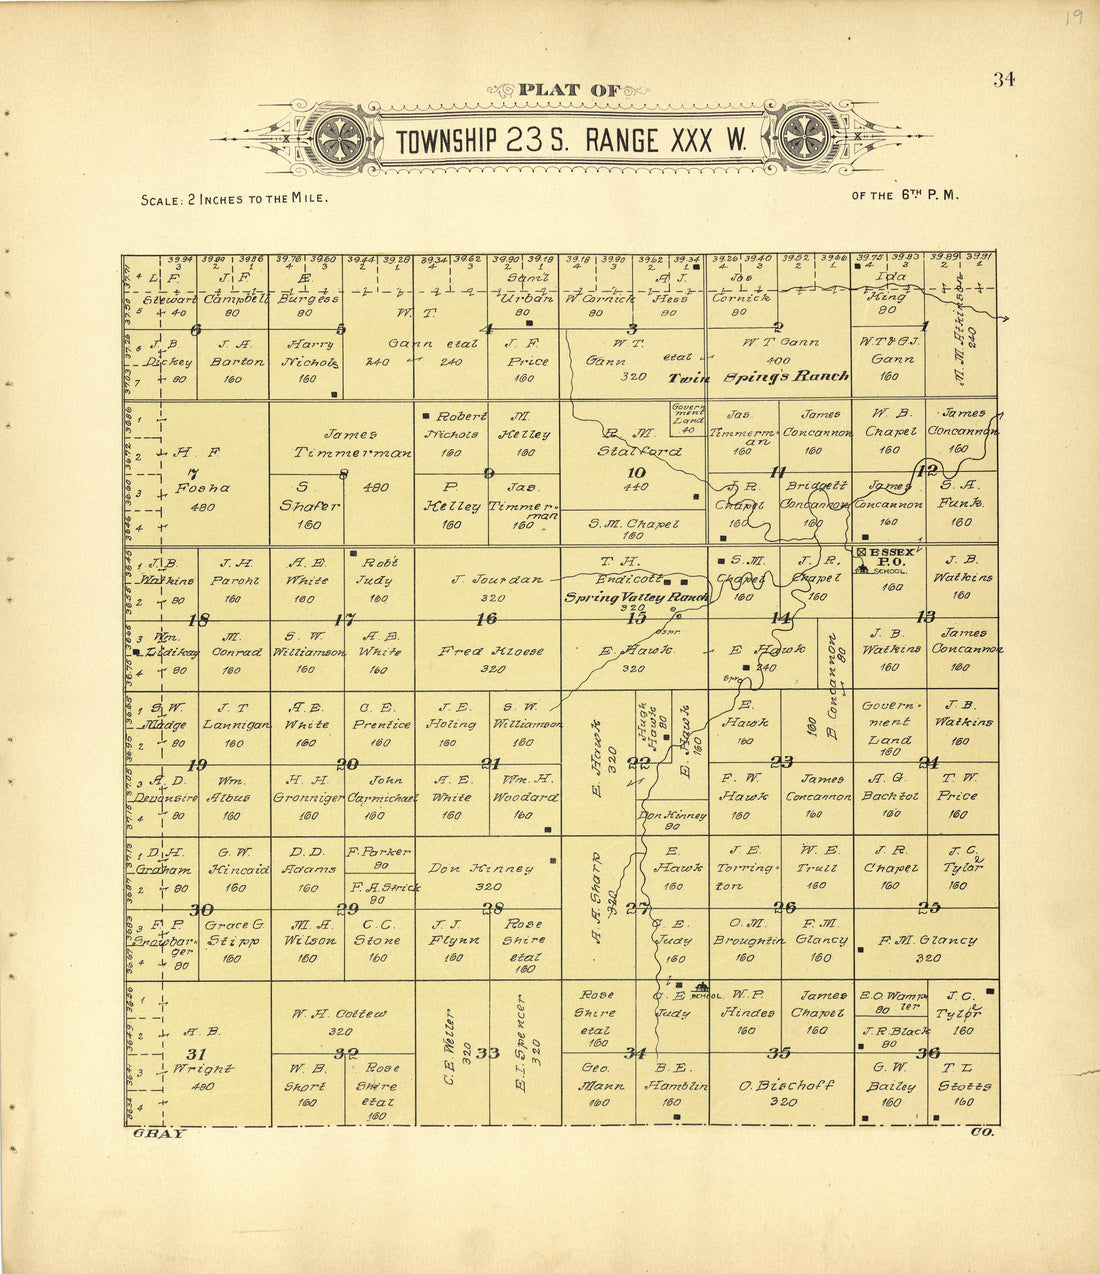 19
34
PLAT OF
TOWNSHIP 23 S. RANGE XXX W.
SCALE: 2 INCHES TO THE MILE.
OF THE 6TH P. M.
39.94 39.90 39.86 39.76 39.60 39.44 39.28 39.34 39.62 39.90 39.18 39.18 39.90 39.62 39.34 39.26 39.40 39.52 39.66 39.75 39.83 39.89 39.91
L. F. Stewart 40
J. F. Campbell 80
E. Burgess 80
W. T. Gann etal 240 240
Saml Urban 80
W Cornick 80
A. J. Hess 80
Jas Cornick 80
Ida King 80
M. M. Atkinson 240
6 5 4 3 2 1
J. B. Dickey 80
J. A. Barton 160
Harry Nichols 160
J. F. Price 160
W. T. Gann etal 320
W T Gann 400
Twin Springs Ranch
W.T & G.J. Gann 160
H. F Fosha 480
James Timmerman 480
Robert Nichols 160
M. Kelley 160
R. M. Stalford 440
Government Land 40
Jas. Timmerman 160
James Concannon 160
W. B. Chapel 160
James Concannon 160
7 8 9 10 11 12
S Shafer 160
P. Kelley 160
Jas. Timmerman 160
S. M. Chapel 160
J. R. Chapel 160
Bridgett Concannon 160
James Concannon 160
S. A. Funk 160
J. B. Watkins 80
J. H. Parohl 160
A. E. White 160
Rob't Judy 160
J. Jourdan 320
T. H. Endicott
Spring Valley Ranch
320
S. M. Chapel 160
J. R. Chapel 160
ESSEX P.O.
SCHOOL.
160
J. B. Watkins 160
18 17 16 15 14 13
Wm. Lidikay 80
M. Conrad 160
S. W. Williamson 160
A. E. White 160
Fred Kloese 320
Spr.
E. Hawk 320
E Hawk 240
Spr.
B. Concannon 80
160
J. B. Watkins 160
James Concannon 160
S. W. Madge 80
J. T Lannigan 160
A. E. White 160
C. E. Prentice 160
J. E. Holing 160
S. W. Williamson 160
E. Hawk 320
Hugh Hawk 80
E. Hawk 160
E. Hawk 160
Government Land 160
J. B. Watkins 160
19 20 21 22 23 24
A. D. Devonsire 80
Wm. Albus 160
H. H. Gronniger 160
John Carmichael 160
A. E. White 160
Wm. H. Woodard 160
Don Kinney 80
F. W. Hawk 160
James Concannon 160
A. G. Bachtol 160
T. W. Price 160
D. H. Graham 80
G. W. Kincaid 160
D. D. Adams 160
F. Parker 80
F. A. Strick 80
Don Kinney 320
A. A. Sharp 320
E. Hawk 160
J. E. Torrington 160
W. E. Trull 160
J. R. Chapel 160
J. C. Tyler 160
30 29 28 27 26 25
F. P. Snowbarger 80
Grace G. Stipp 160
M. A. Wilson 160
C. C. Stone 160
J. J. Flynn 160
Rose Shire etal 160
C. E. Judy 160
O. M. Broughtin 160
F. M. Glancy 160
F. M Glancy 320
A. B. Wright 480
W. H. Cottew 320
C. E. Weller 320
E. I. Spencer 320
Rose Shire etal 160
C. E Judy
SCHOOL.
W. P. Hindes 160
James Chapel 160
E. O. Wampler 80
J. R. Black 80
J. C. Tyler 160
31 32 33 34 35 36
W. B. Short 160
Rose Shire etal 160
Geo. Mann 160
B. E. Hamblin 160
O. Bischoff 320
G. W. Bailey 160
T L Stotts 160
GRAY CO.